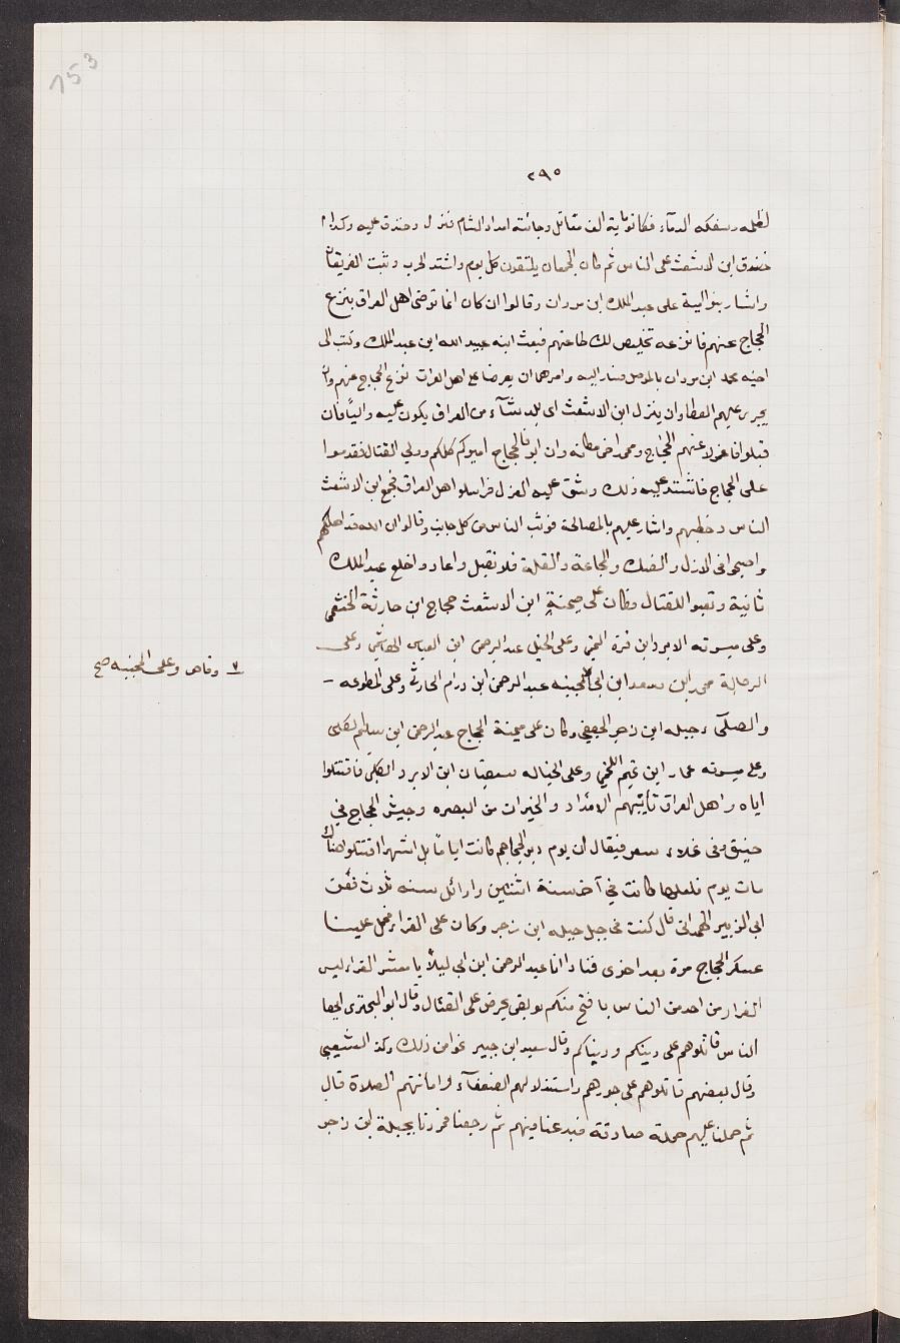 153
٢٩٥
لظلمه وسفكه الدمآء فكانوا ماية الف مقاتل وجائته امداد الشام فنزل وخندق عليه وكذا
خندق ابن الاشعث على الناس ثم كان الجمعان يلتقون كل يوم واشتد الحرب وثبت الفريقان
واشار بنو امية على عبد الملك ابن مروان وقالوا ان كان انما ترضى اهل العراق بنزع
الحجاج عنهم فانزعه تخلص لك طاعتهم فبعث ابنه عبيد الله ابن عبد الملك وكتب الى
اخيه محمد ابن مروان بالموصل فسار اليه وامرهما ان يعرضا على اهل العراق نزع الحجاج عنهم وان
يجرى عليهم العطا وان ينزل ابن الاشعث اى بلد شآء من العراق يكون عليه واليًا فان
قبلوا فاعزلا عنهم الحجاج ومحمد اخى مكانه وان ابوا فالحجاج اميركم كلكم وولي القتال فقدموا
على الحجاج فاشتد عليه ذلك وشق عليه العزل فراسلوا اهل العراق فجمع ابن الاشعث
الناس وخطبهم واشار عليهم بالمصالحة فوثب الناس من كل جانب وقالوا ان الله قد اهلكهم
واصبحوا فى الازل والضنك والمجاعة والقلة فلا نقبل واعادوا خلع عبد الملك
ثانية وتعبوا للقتال وكان على ميمنة ابن الاشعث حجاج ابن حارثة الخثعمي
وعلى ميسرته الابرد ابن قرة التميمي وعلى الخيل عبد الرحمن ابن العباس الهاشمي وعلى
الرجالة محمد ابن سعد ابن ابي المجنبه عبد الرحمن ابن رزام الحارثي وعلى المطوعه
٧ وقاص وعلى المجنبه صح
والصلحآء جبله ابن زحر الجعفي وكان على ميمنة الحجاج عبد الرحمن ابن سليم الكلبى
وعلى ميسرته عمار ابن تميم اللخمي وعلى الخياله سفيان ابن الابرد الكلبى فاقتتلوا
اياما واهل العراق تأتيهم الامداد والخيرات من البصره وجيش الحجاج في
ضيق وفى غلاء سعر فيقال ان يوم دير الجماجم كانت اياما بل اشهرا اقتتلوا هناك
مات يوم فلعلها كانت في آخر سنة اثنتين واوائل سنه ثلاث فعن
ابى الزبير الهمدانى قال كنت في خيل جبله ابن زحر وكان على القراء فحمل علينا
عسكر الحجاج مرة بعد اخرى فنادانا عبد الرحمن ابن ابي ليلاً يا معشر القراء ليس
الفرار من احد من الناس باقبح منكم وبقى يحرض على القتال وقال ابو البخترى ايها
الناس قاتلوهم على دينكم ودنياكم وقال سعيد ابن جبير نحوا من ذلك وكذا الشعبي
وقال بعضهم قاتلوهم على جورهم واستذلالهم الضعفآء واماتتهم الصلاة قال
ثم حملنا عليهم حملة صادقة فبدعنا فيهم ثم رجعنا فمررنا بجبلة ابن زحر